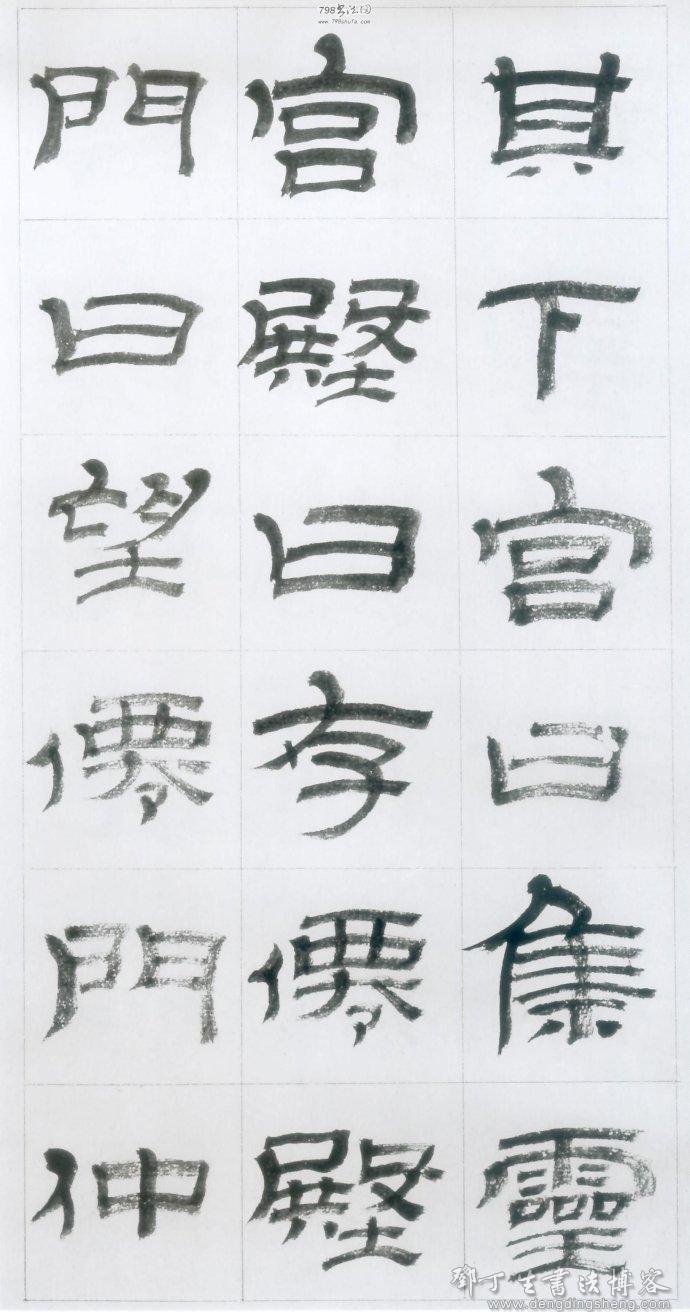 798书法网
www.798shufa.com
其下宫曰集靈
宫壂曰存僊壂
門曰望僊門仲
鄧丁生書法博客
www.dengdingsheng.com